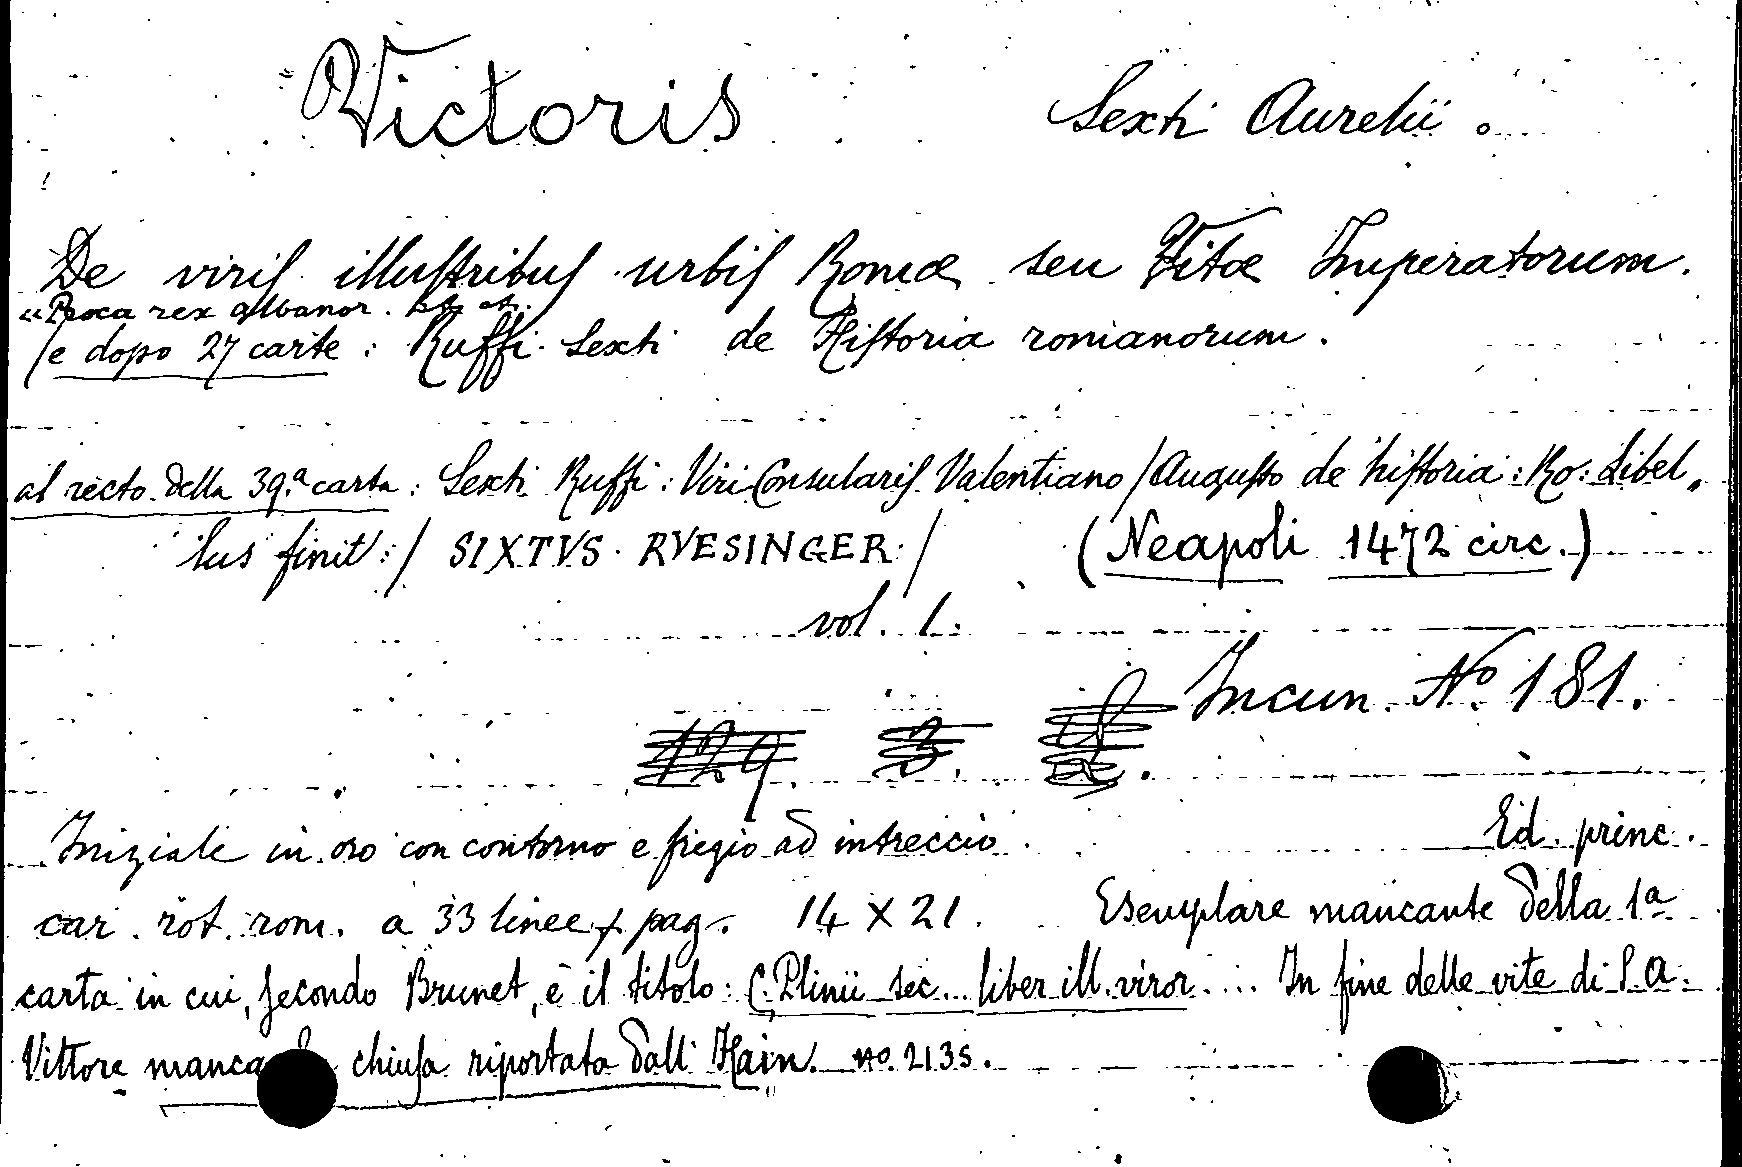 Victoris Sexti Aurelii.
De viris illustribus urbis Romæ seu Vitæ Imperatorum.
"Proca rex albanor. et et.
/e dopo 27 carte: Ruffi Sexti de Historia romanorum.
al recto della 39.ª carta: Sexti Ruffi: Viri Consularis Valentiano / Augusto de historia: Ro: Libel„
lus finit: / SIXTVS RVESINGER / (Neapoli 1472 circ.)
vol. 1.
Incun. Nº 181.
129. 3.
Iniziale in oro con contorno e fregio ad intreccio. Ed. princ.
car. rot. rom. a 33 linee p pag. 14 X 21. Esemplare mancante della 1ª
carta in cui, secondo Brunet, è il titolo: C. Plinii sec... liber ill. viror.... In fine delle vite di S. A.
Vittore manca chiusa riportata dall' Hain. nº. 2135.